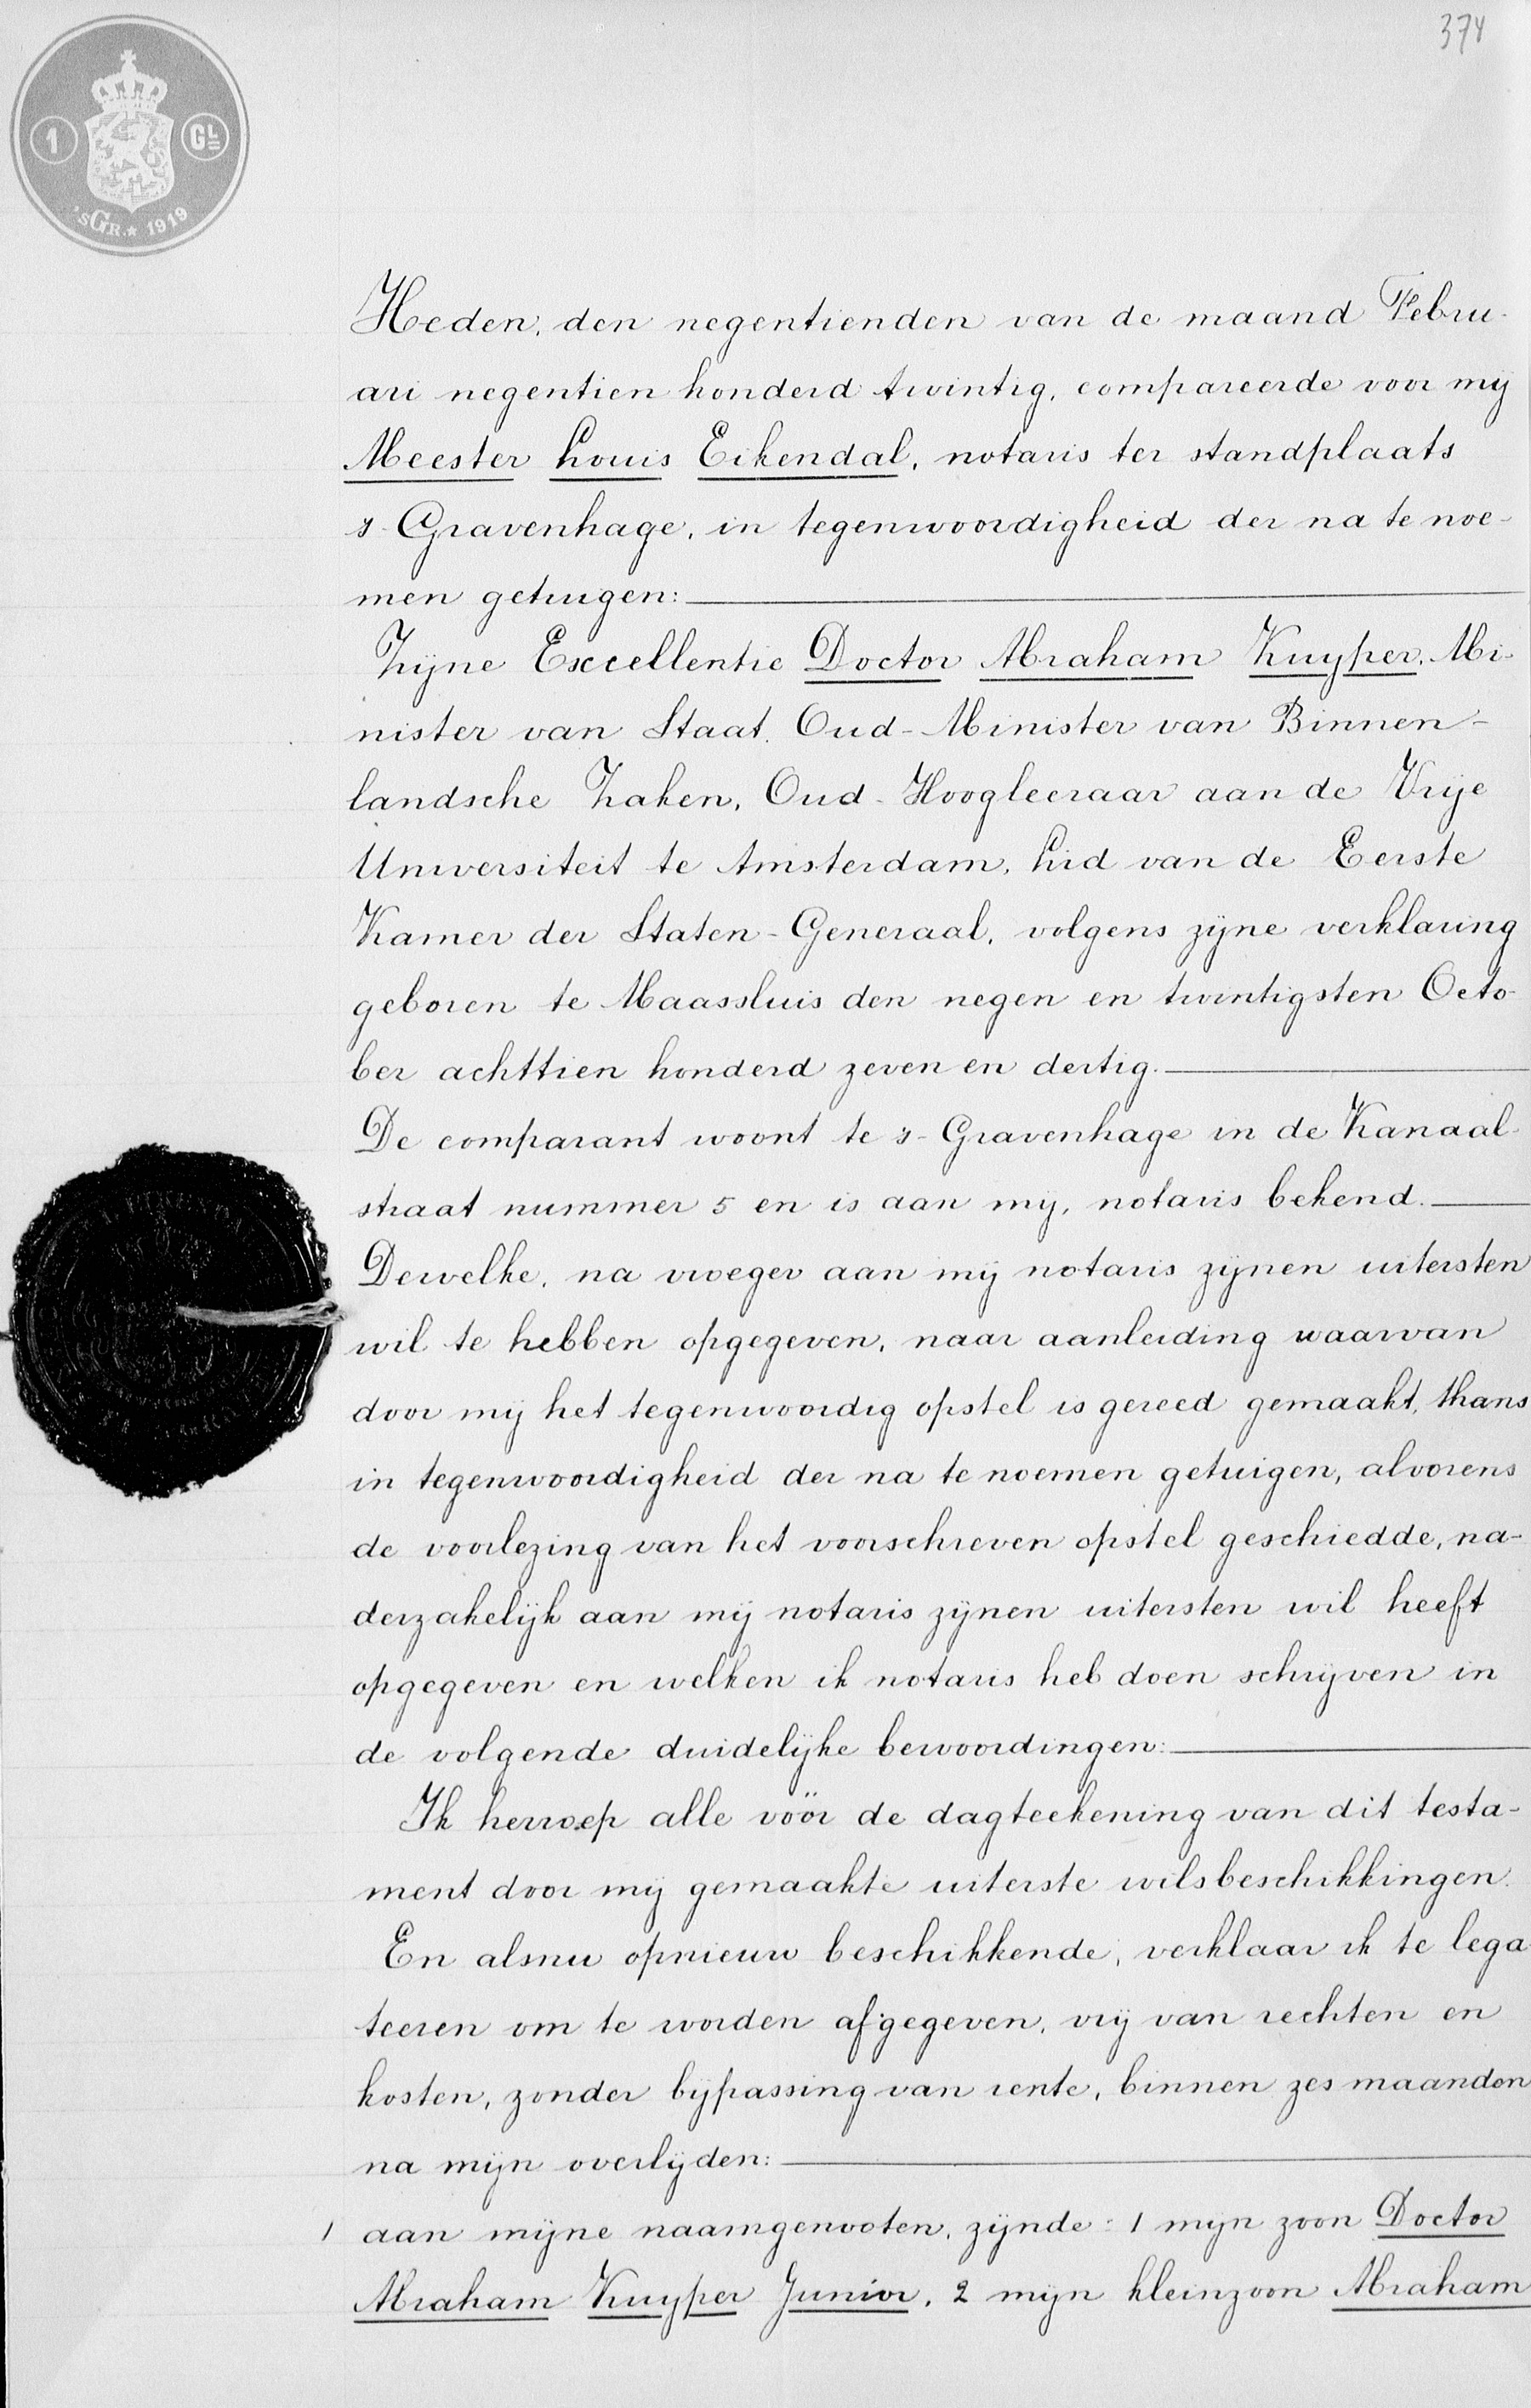 374
1 GL
'sGR.★ 1919
Heden, den negentienden van de maand Febru-
ari negentien honderd twintig, compareerde voor mij
Meester Louis Eikendal, notaris ter standplaats
s-Gravenhage, in tegenwoordigheid der na te noe-
men getuigen:
Zijne Excellentie Doctor Abraham Kuyper, Mi-
nister van Staat, Oud-Minister van Binnen-
landsche Zaken, Oud-Hoogleeraar aan de Vrije
Universiteit te Amsterdam, Lid van de Eerste
Kamer der Staten-Generaal, volgens zijne verklaring
geboren te Maassluis den negen en twintigsten Octo-
ber achttien honderd zeven en dertig.
De comparant woont te s-Gravenhage in de Kanaal-
straat nummer 5 en is aan mij, notaris bekend.
Dewelke, na vroeger aan mij notaris zijnen uitersten
wil te hebben opgegeven, naar aanleiding waarvan
door mij het tegenwoordig opstel is gereed gemaakt, thans
in tegenwoordigheid der na te noemen getuigen, alvorens
de voorlezing van het voorschreven opstel geschiedde, na-
derzakelijk aan mij notaris zijnen uitersten wil heeft
opgegeven en welken ik notaris heb doen schrijven in
de volgende duidelijke bewoordingen:
Ik herroep alle vóór de dagteekening van dit testa-
ment door mij gemaakte uiterste wilsbeschikkingen.
En alsnu opnieuw beschikkende, verklaar ik te lega
teeren om te worden afgegeven, vrij van rechten en
kosten, zonder bijpassing van rente, binnen zes maanden
na mijn overlijden:
1 aan mijne naamgenooten, zijnde: 1 mijn zoon Doctor
Abraham Kuyper Junior, 2 mijn kleinzoon Abraham